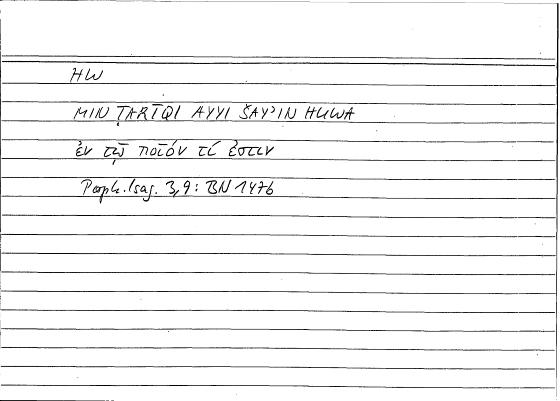 HW
MIN ṬARĪQI AYYI ŠAYʾIN HUWA
ἐν τῷ ποῖόν τί ἐστιν
Porph. Isag. 3,9: BN 147b